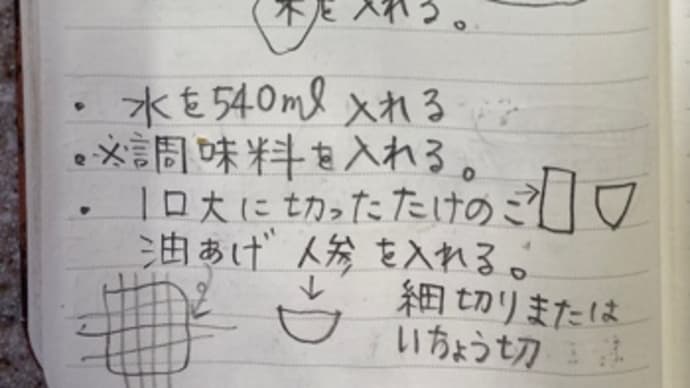 米を入れる。
・水を540ml入れる
・※調味料を入れる。
・1口大に切ったたけのこ→
油あげ 人参を入れる。
細切りまたは
いちょう切